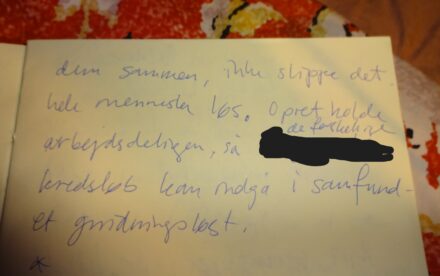 dem sammen, ikke slippe det
hele menneske løs. Opretholde
arbejdsdelingen, så de forskellige
kredsløb kan indgå i samfund-
et gnidningsløst.
*